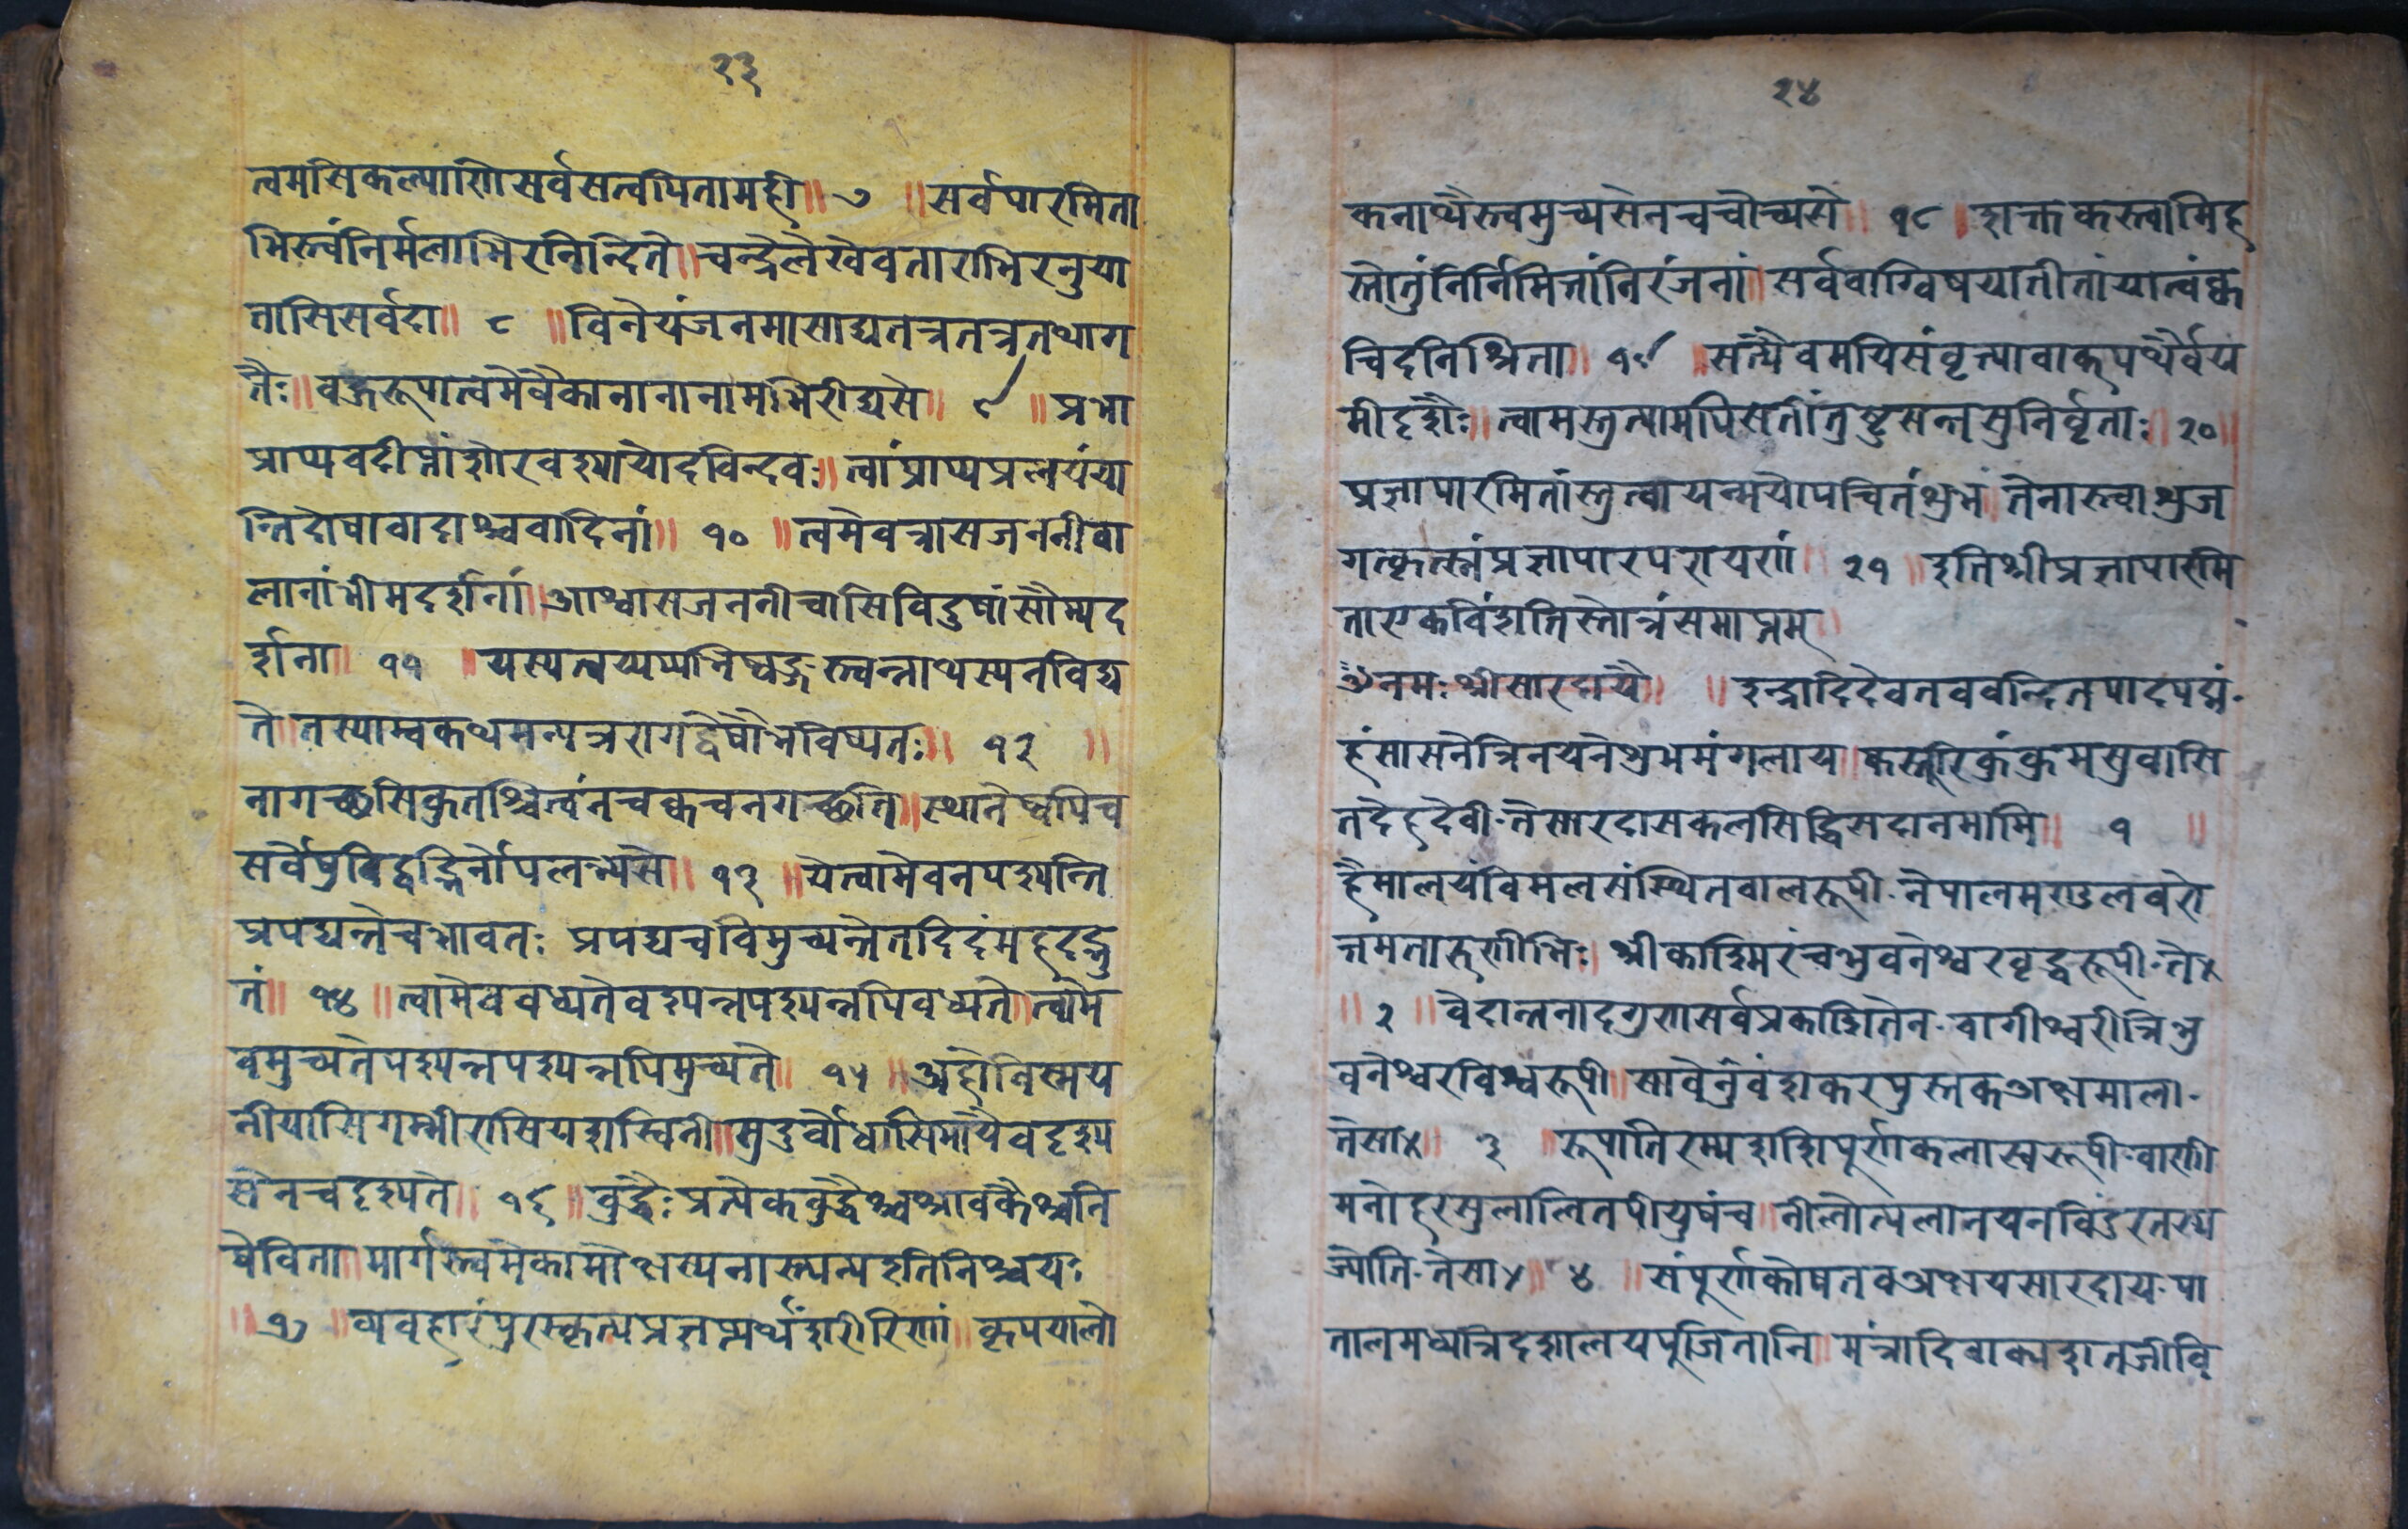 २३
त्वमसिकल्याणिसर्वसत्वपितामही॥ ७ ॥सर्वपारमिता
भिस्त्वंनिर्मलाभिरनिन्दिते॥चन्द्रलेखेवताराभिरनुया
तासिसर्वदा॥ ८ ॥विनेयंजनमासाद्यतत्रतत्रतथाग
तैः॥वहुरूपात्वमेवैकानानानामभिरीद्यसे॥ ९ ॥प्रभा
प्राप्यवदीप्तांशोरवश्यायोदविन्दवः॥त्वांप्राप्यप्रलयंया
न्तिदोषावादाश्चवादिनां॥ १० ॥त्वमेवत्रासजननीवा
लानांभीमदर्शनां॥आश्वासजननीचासिविदुषांसौम्यद
र्शना॥ ११ ॥यस्यत्वय्यप्यभिष्वङ्गस्त्वन्नाथस्यनविद्य
ते॥तस्याम्वकथमन्यत्ररागद्वेषौभविष्यतः॥ १२ ॥
नागच्छसिकुतश्चित्वंनचक्वचनगच्छति॥स्थानेष्वपिच
सर्वेषुविद्वद्भिर्नोपलभ्यसे॥ १३ ॥येत्वामेवनपश्यन्ति
प्रपद्यन्तेचभावतः प्रपद्यचविमुच्यन्तेतदिदंमहदद्भु
तं॥ १४ ॥त्वामेववध्यतेवश्यन्नपश्यन्नपिवध्यते॥त्वामे
वमुच्यतेपश्यन्नपश्यन्नपिमुच्यते॥ १५ ॥अहोविस्मय
नीयासिगम्भीरासियशस्विनी॥सुदुर्वोधासिमायेवदृश्य
सेनचदृश्यते॥ १६ ॥वुद्धैःप्रत्येकवुद्धैश्चश्रावकैश्चनि
षेविता॥मार्गस्त्वमेकामोक्षस्यनास्त्यन्यइतिनिश्चयः
॥१७ ॥व्यवहारंपुरस्कृत्यप्रज्ञप्त्यर्थंशरीरिणां॥कृपयालो
२४
कनाथैस्त्वमुच्यसेनचचोच्यसे॥ १८ ॥शक्तकस्त्वामिह
स्तोतुंनिर्निमित्तांनिरंजनां॥सर्ववाग्विषयातीतांयात्वंक्व
चिदनिश्रिता॥ १९ ॥सत्यैवमयिसंवृत्यावाक्पथैर्वय
मीदृशैः॥त्वामस्तुत्यामपिस्तोतुंतुष्टुसन्तसुनिर्वृताः॥२०॥
प्रज्ञापारमितांस्तुत्वायन्मयोपचितंशुभं॥तेनास्त्वाशुज
गत्कृत्स्नंप्रज्ञापारपरायणां॥ २१ ॥इतिश्रीप्रज्ञापारमि
ताएकविंशतिस्तोत्रंसमाप्तम्॥
ॐनमःश्रीसारदायै॥ ॥इन्द्रादिदेवतववन्दितपादपद्मं·
हंसासनेत्रिनयनेशुभमंगलाय॥कस्तूरिकुंकुमसुवासि
तदेहदेवी·तेसारदासकलसिद्धिसदानमामि॥ १ ॥
हेमालयंविमलसंस्थितवालरूपी·नेपालमण्डलवरो
त्तमतारुणीभिः॥श्रीकाश्मिरंचभुवनेश्वरवृद्धरूपी·ते॥
॥ २ ॥वेदान्तनादगुणसर्वप्रकाशितेन·वागीश्वरीत्रिभु
वनेश्वरविश्वरूपी॥सावेर्नुवंशकरपुस्तकअक्षमाला·
तेसा॥ ३ ॥रूपातिरम्यशशिपुर्णकलास्वरूपी·वाणी
मनोहरसुलालितपीयुषंच॥नीलोत्पलानयनविंदुरतस्य
ज्योति·तेसा॥ ४ ॥संपुर्णकोषतवअक्षयसारदाय·पा
तालमध्यत्रिदशालयपुजितानि॥मंत्रादिवाक्यशतजीवि